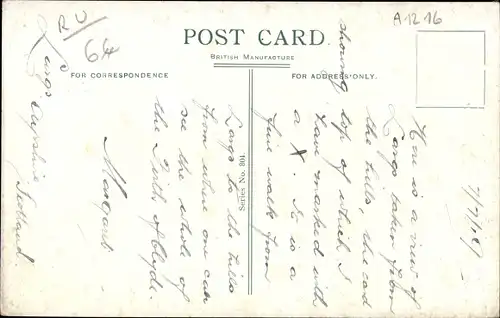 RU
64
A 12 16
POST CARD
BRITISH MANUFACTURE
FOR CORRESPONDENCE
FOR ADDRESS ONLY.
Series No. 804
Here is a view of
Largs taken from
the hills, the road
showing top of which I
have marked with
a X. It is a
fine walk from
Largs to the hills
from where one can
see the whole of
the Firth of Clyde.
Margart.
Largs Ayrshire